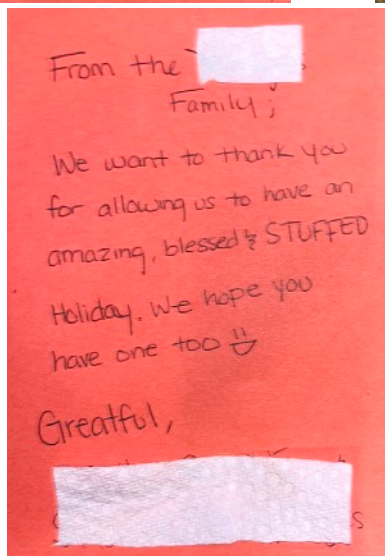 From the
Family;
We want to thank you
for allowing us to have an
amazing, blessed & STUFFED
Holiday. We hope you
have one too
Greatful,